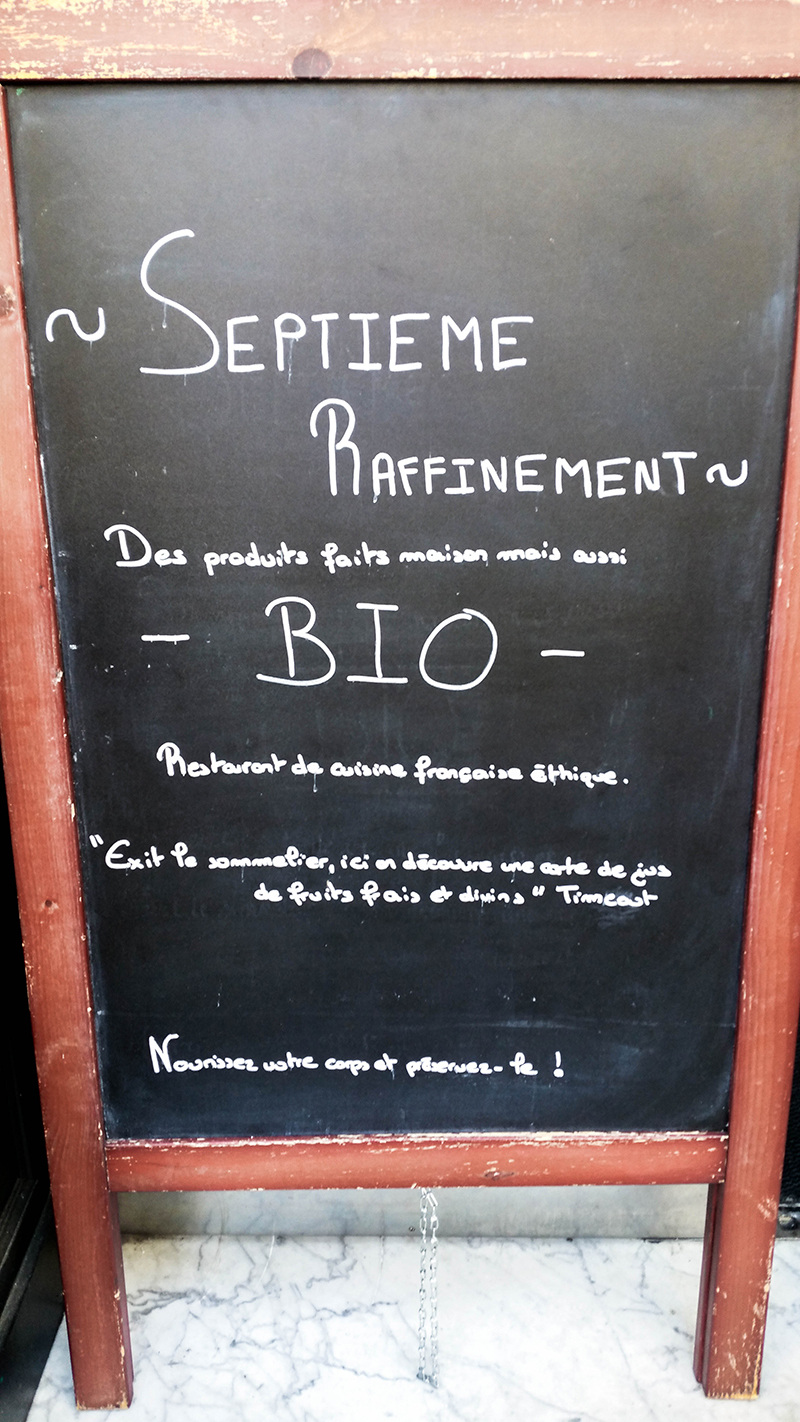 ~ SEPTIEME
RAFFINEMENT ~
Des produits faits maison mais aussi
- BIO -
Restaurant de cuisine française éthique.
"Exit le sommelier, ici on découvre une carte de jus
de fruits frais et divins" Timeout
Nourissez votre corps et préservez-le !